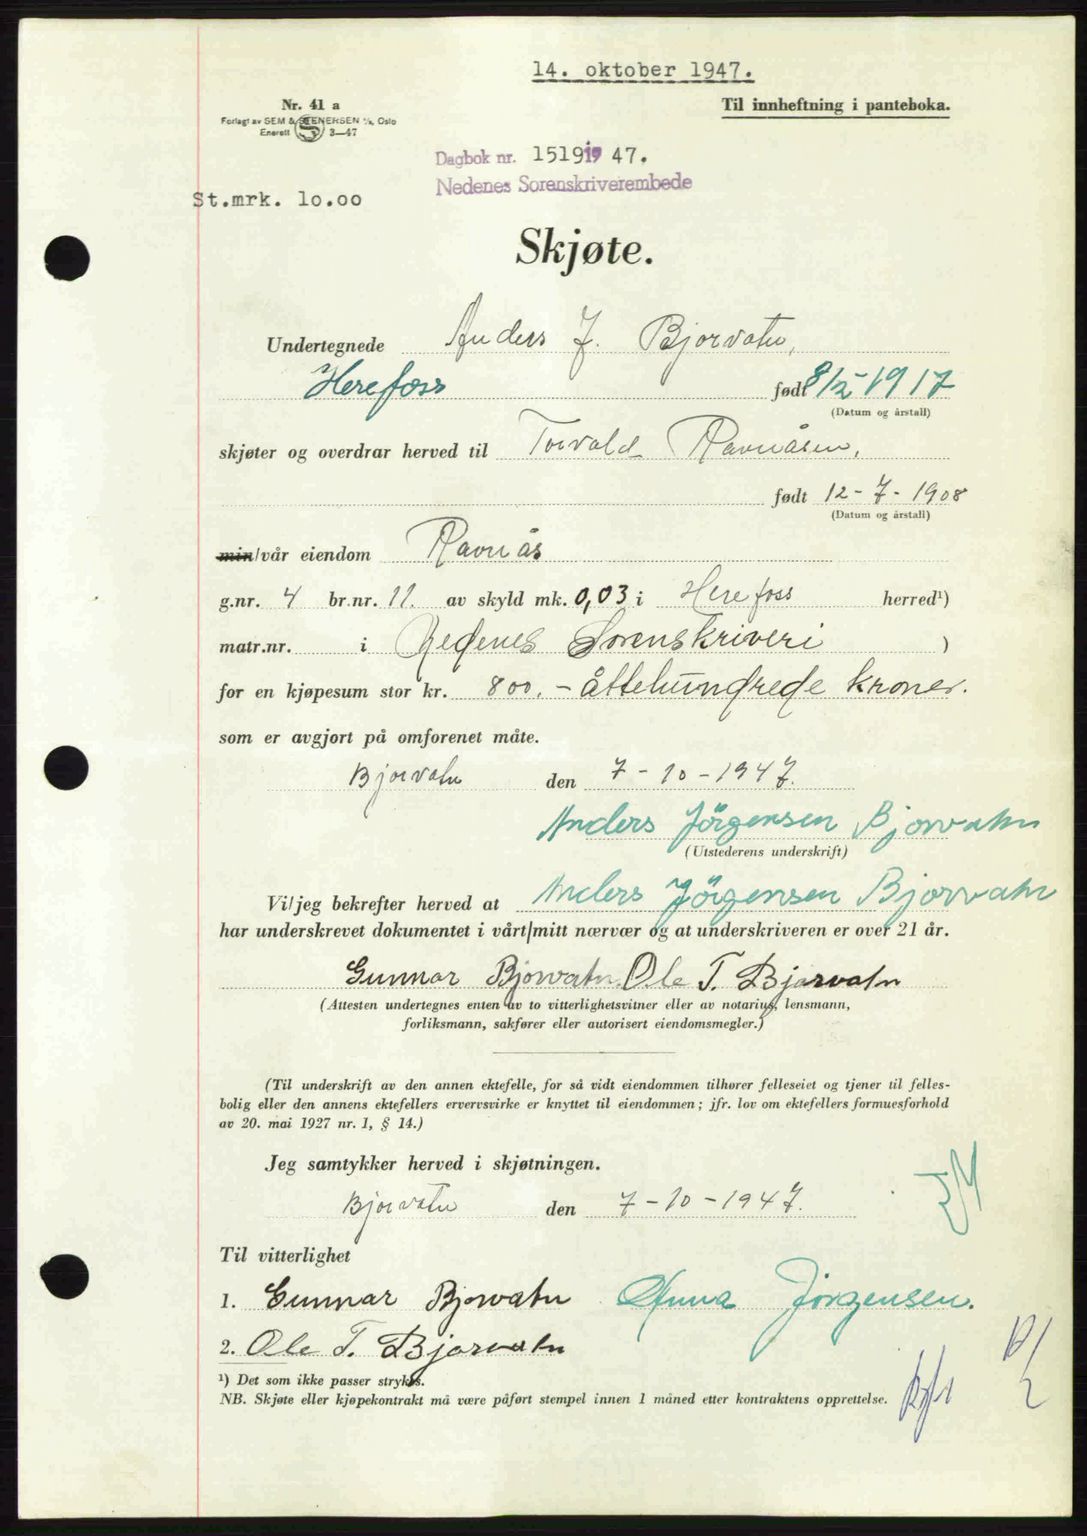 14. oktober 1947.
Nr. 41 a
Til innheftning i panteboka.
Forlagt av SEM & STENERSEN A/S, Oslo
Enerett 3—47
Dagbok nr. 1519 19 47.
Nedenes Sorenskriverembede
St.mrk. 10.00
Skjøte.
Undertegnede Anders J. Bjorvatn,
Herefoss født 8/2-1917
(Datum og årstall)
skjøter og overdrar herved til Torvald Ravnåsen,
født 12-7-1908
(Datum og årstall)
min/vår eiendom Ravnås
g.nr. 4 br.nr. 11. av skyld mk. 0,03 i Herefoss herred¹)
matr.nr. i Nedenes Sorenskriveri )
for en kjøpesum stor kr. 800.- åttehundrede kroner.
som er avgjort på omforenet måte.
Bjorvatn den 7-10-1947.
Anders Jörgensen Bjorvatn
(Utstederens underskrift)
Vi/jeg bekrefter herved at Anders Jörgensen Bjorvatn
har underskrevet dokumentet i vårt/mitt nærvær og at underskriveren er over 21 år.
Gunnar Bjorvatn. Ole T. Bjorvatn
(Attesten undertegnes enten av to vitterlighetsvitner eller av notarius, lensmann,
forliksmann, sakfører eller autorisert eiendomsmegler.)
(Til underskrift av den annen ektefelle, for så vidt eiendommen tilhører felleseiet og tjener til felles-
bolig eller den annens ektefellers ervervsvirke er knyttet til eiendommen; jfr. lov om ektefellers formuesforhold
av 20. mai 1927 nr. 1, § 14.)
Jeg samtykker herved i skjøtningen.
Bjorvatn den 7-10-1947.
Til vitterlighet
1. Gunnar Bjorvatn Anna Jörgensen.
2. Ole T. Bjorvatn
¹) Det som ikke passer strykes.
NB. Skjøte eller kjøpekontrakt må være påført stempel innen 1 måned etter kontraktens opprettelse.